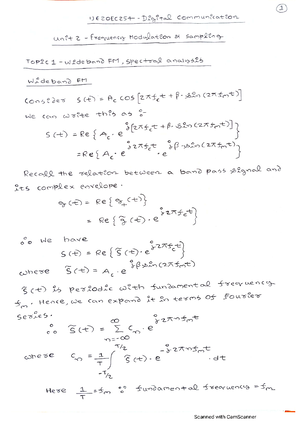 1
UE20EC254 - Digital Communication
Unit 2 - Frequency Modulation & Sampling
TOPIC 1 - Wideband FM, spectral analysis
Wideband FM
Consider s(t) = A_c cos[2πf_c t + β·sin(2πf_m t)]
We can write this as :
s(t) = Re{A_c · e^{j[2πf_c t + β·sin(2πf_m t)]}}
= Re{A_c · e^{j2πf_c t} · e^{jβ·sin(2πf_m t)}}
Recall the relation between a band pass signal and
its complex envelope.
g(t) = Re{g_+(t)}
= Re{g̃(t) · e^{j2πf_c t}}
∴ We have
s(t) = Re{s̃(t) · e^{j2πf_c t}}
where s̃(t) = A_c · e^{jβsin(2πf_m t)}
s̃(t) is periodic with fundamental frequency
f_m. Hence, we can expand it in terms of Fourier
series.
∴ s̃(t) = ∑_{n=-∞}^{∞} C_n · e^{j2πnf_m t}
where C_n = 1/T ∫_{-T/2}^{T/2} s̃(t) · e^{-j2πnf_m t} · dt
Here 1/T = f_m ∵ fundamental frequency = f_m
Scanned with CamScanner